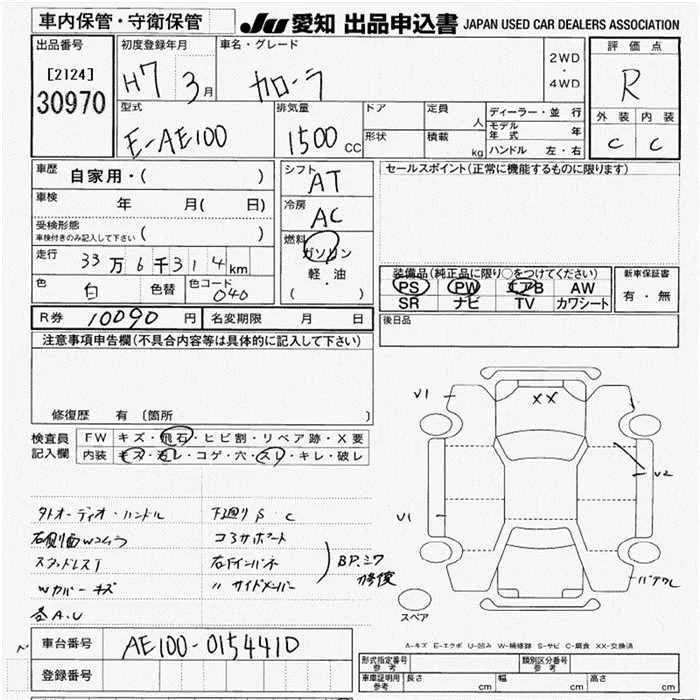 車内保管・守衛保管
JU 愛知 出品申込書 JAPAN USED CAR DEALERS ASSOCIATION
出品番号 初度登録年月 車名・グレード 2WD ・ 4WD 評価点
[2124] H7 3月 カローラ R
30970
型式 排気量 ドア 定員 人 ディーラー・並行 外装 内装
E-AE100 1500CC 形状 積載 kg モデル年式 年 C C
ハンドル 左・右
車歴 自家用・( ) シフト AT セールスポイント(正常に機能するものに限ります)
車検 年 月( 日) 冷房 AC
受検形態 車検付きのみ記入して下さい ( )
燃料 ガソリン
走行 33万6千314km 軽・油
装備品(純正品に限り○をつけてください) 新車保証書
色 白 色替 色コード 040 ( ・ ) PS PW エアB AW 有・無
SR ナビ TV カワシート
R券 10090円 名変期限 月 日 後日品
注意事項申告欄(不具合内容等は具体的に記入して下さい)
修復歴 有 〔箇所 〕
検査員 FW キズ・飛石・ヒビ割・リペア跡・X要
記入欄 内装 キズ・汚レ・コゲ・穴・スレ・キレ・破レ
V1
XX
V2
V1
外オーディオ・ハンドル 下廻りS.C
コアサポート
スタッドレスT 右Fインパネ
Wカバーキズ 〃 サイドメンバー
BP.ミワ 修復
各A.U
スペア
A-キズ E-エクボ U-凹み W-補修跡 S-サビ C-腐食 XX-交換済
車台番号 AE100-0154410
登録番号
型式指定番号 参考 類別区分番号 参考
車庫証明用 参考 長さ cm 幅 cm 高さ cm